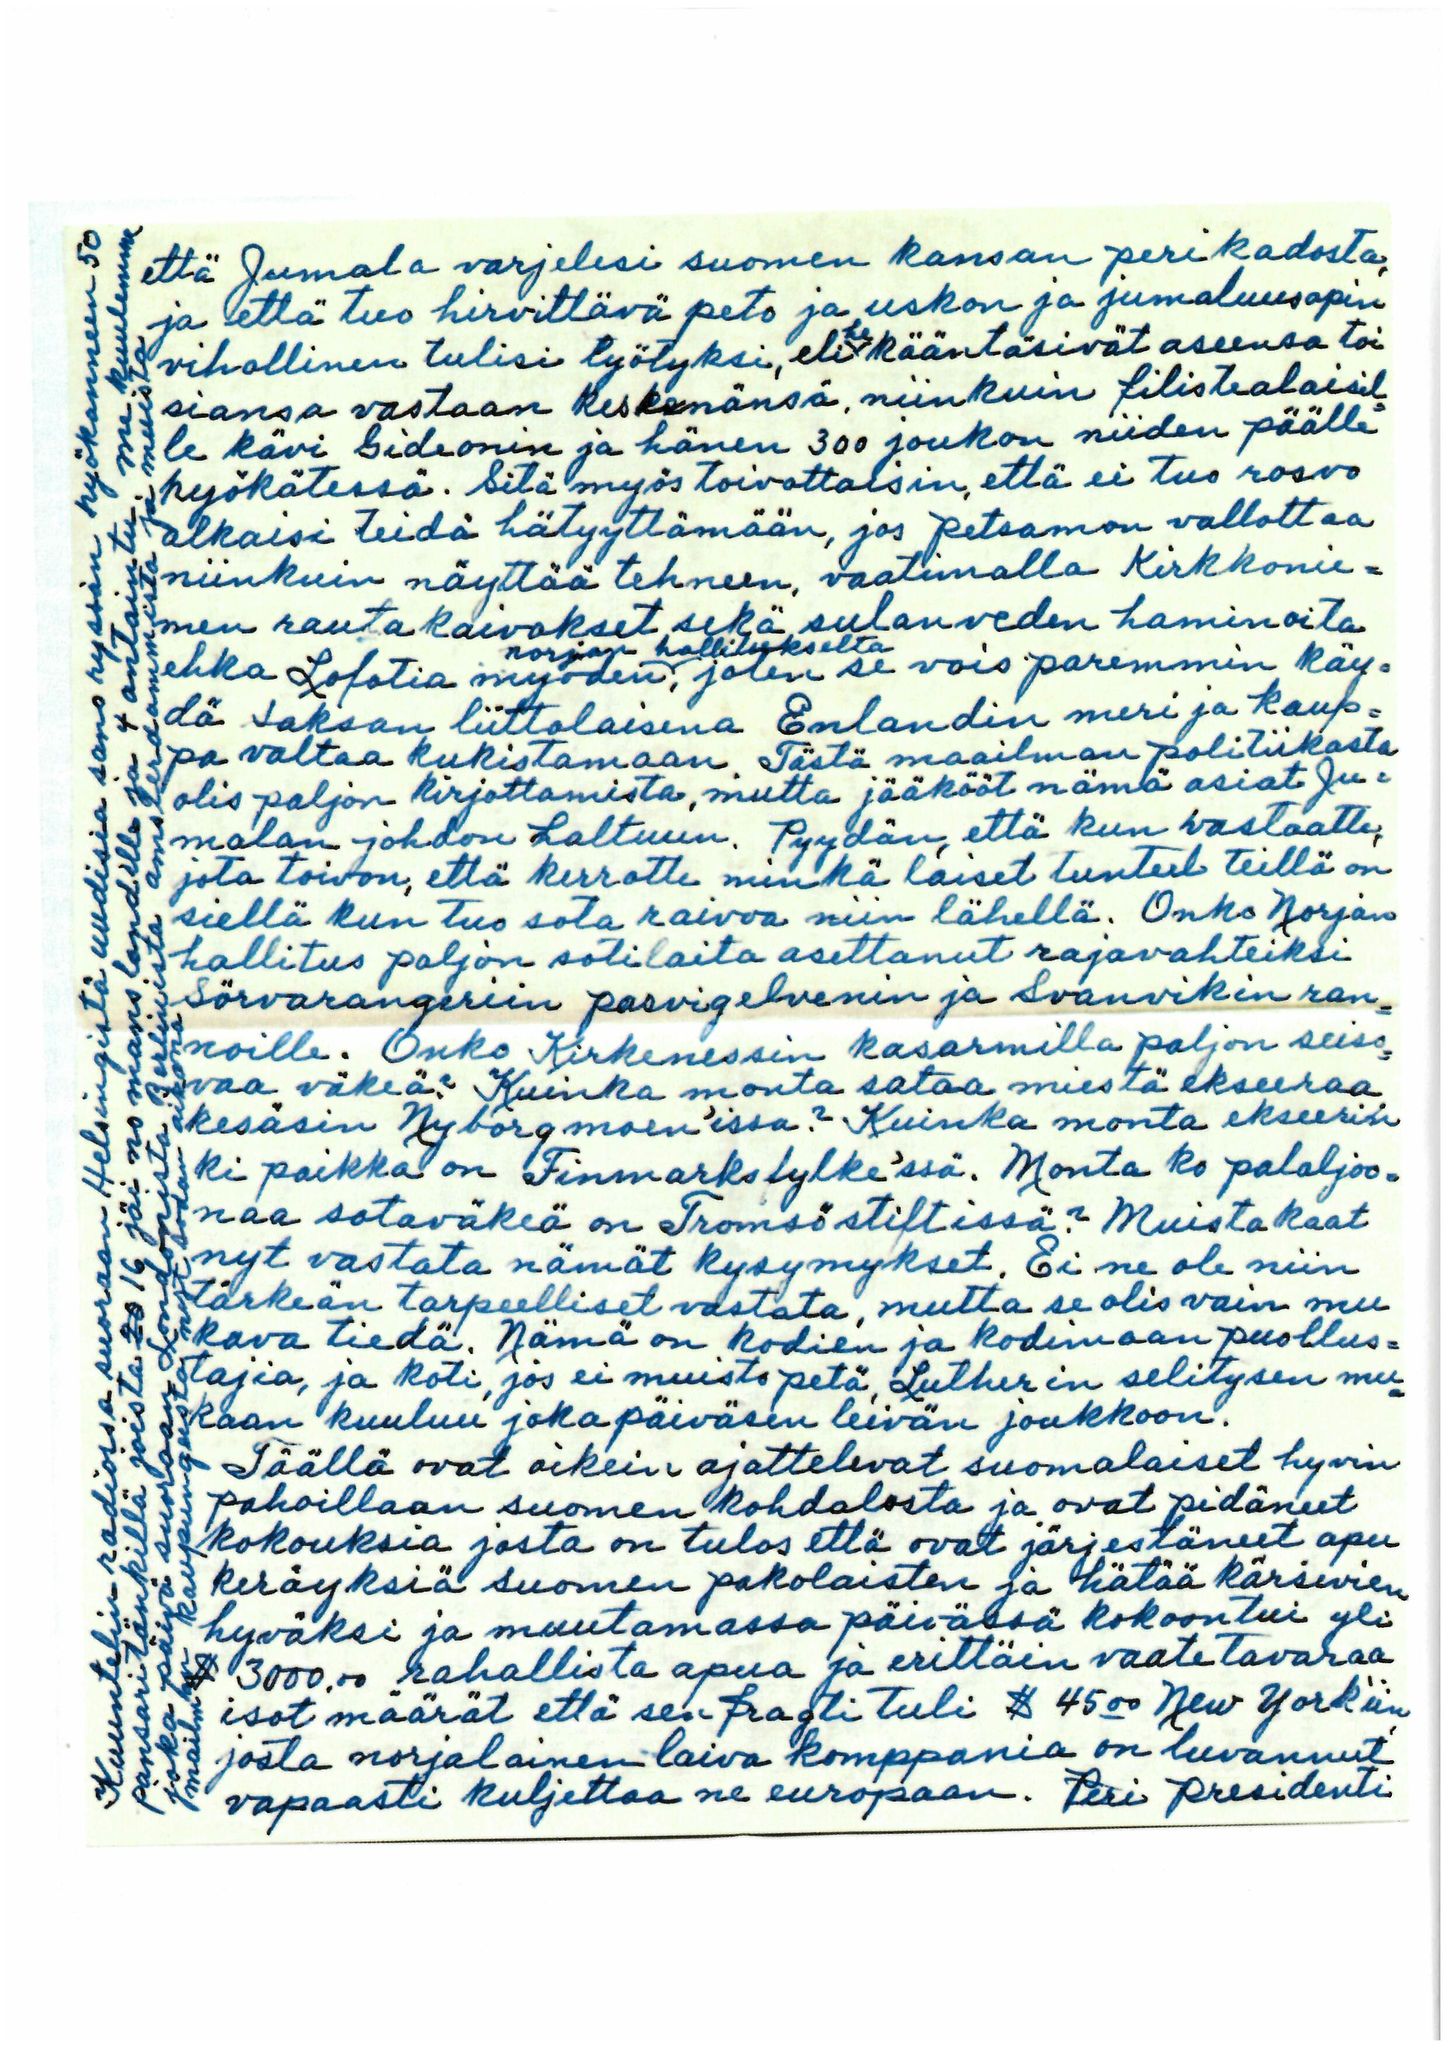 että Jumala varjelesi suomen kansan perikadosta,
ja että tuo hirvittävä peto ja uskon ja jumaluusopin
vihollinen tulisi lyötyksi, eli he kääntäsivät aseensa toi
siansa vastaan keskenänsä, niinkuin filistealaisil=
le kävi Gideonin ja hänen 300 joukon niiden päälle
hyökätessä. Sitä myös toivottaisin, että ei tuo rosvo
alkaisi teidä hätyyttämään, jos petsamon vallottaa
niinkuin näyttää tehneen, vaatimalla Kirkkonie=
men rauta kaivokset sekä sulanveden haminoita
norjan hallitukselta
ehka Lofotia myöden, joten se vois paremmin käy=
dä Saksan liittolaisena Enlandin meri ja kaup=
pa valtaa kukistamaan. Tästä maailman politiikasta
olis paljon kirjottamista, mutta jääkööt nämä asiat Ju=
malan johdon haltuun. Pyydän, että kun vastaatte,
jota toivon, että kerrotte minkä laiset tunteet teillä on
siellä kun tuo sota raivoa niin lähellä. Onko Norjan
hallitus paljon sotilaita asettanut rajavahteiksi
Sörvarangeriin pasvigelvenin ja Svanvikin ran=
noille. Onko Kirkenessin kasarmilla paljon seiso=
vaa väkeä? Kuinka monta sataa miestä ekseeraa
kesäsin Nyborgmoen'issa? Kuinka monta ekseerin
ki paikka on Finmarksfylke'ssä. Monta ko pataljoo=
naa sotaväkeä on Tromsöstiftissä? Muistakaat
nyt vastata nämät kysymykset. Ei ne ole niin
tärkeän tarpeelliset vastata, mutta se olis vain mu
kava tiedä. Nämä on kodien ja kodimaan puollus=
tajia, ja koti, jos ei muisto petä, Lutherin selitysen mu=
kaan kuuluu joka päiväsen leivän joukkoon.
Täällä ovat oikein ajattelevat suomalaiset hyvin
pahoillaan suomen kohdalosta ja ovat pidäneet
kokouksia josta on tulos että ovat järjestäneet apu
keräyksiä suomen pakolaisten ja hätää kärsivien
hyväksi ja muutamassa päivässä kokoontui yli
$ 3000.00 rahallista apua ja erittäin vaatetavaraa
isot määrät että sen fragti tuli $ 45 00 New York'iin,
josta norjalainen laiva komppania on luvannut
vapaasti kuljettaa ne europaan. Peri Presidenti
Kuuntelin radiossa suoraan Helsingistä uudisia sano ryssän hyökänneen 50
pansaritänkillä joista 20 16 jäi no mans landille ja 4 antaintu. me kuulemma
joka päivä suoraan Londonista Perliinistä amsterdammista ja muista
mailman kaupungeista nyt sodan aikona